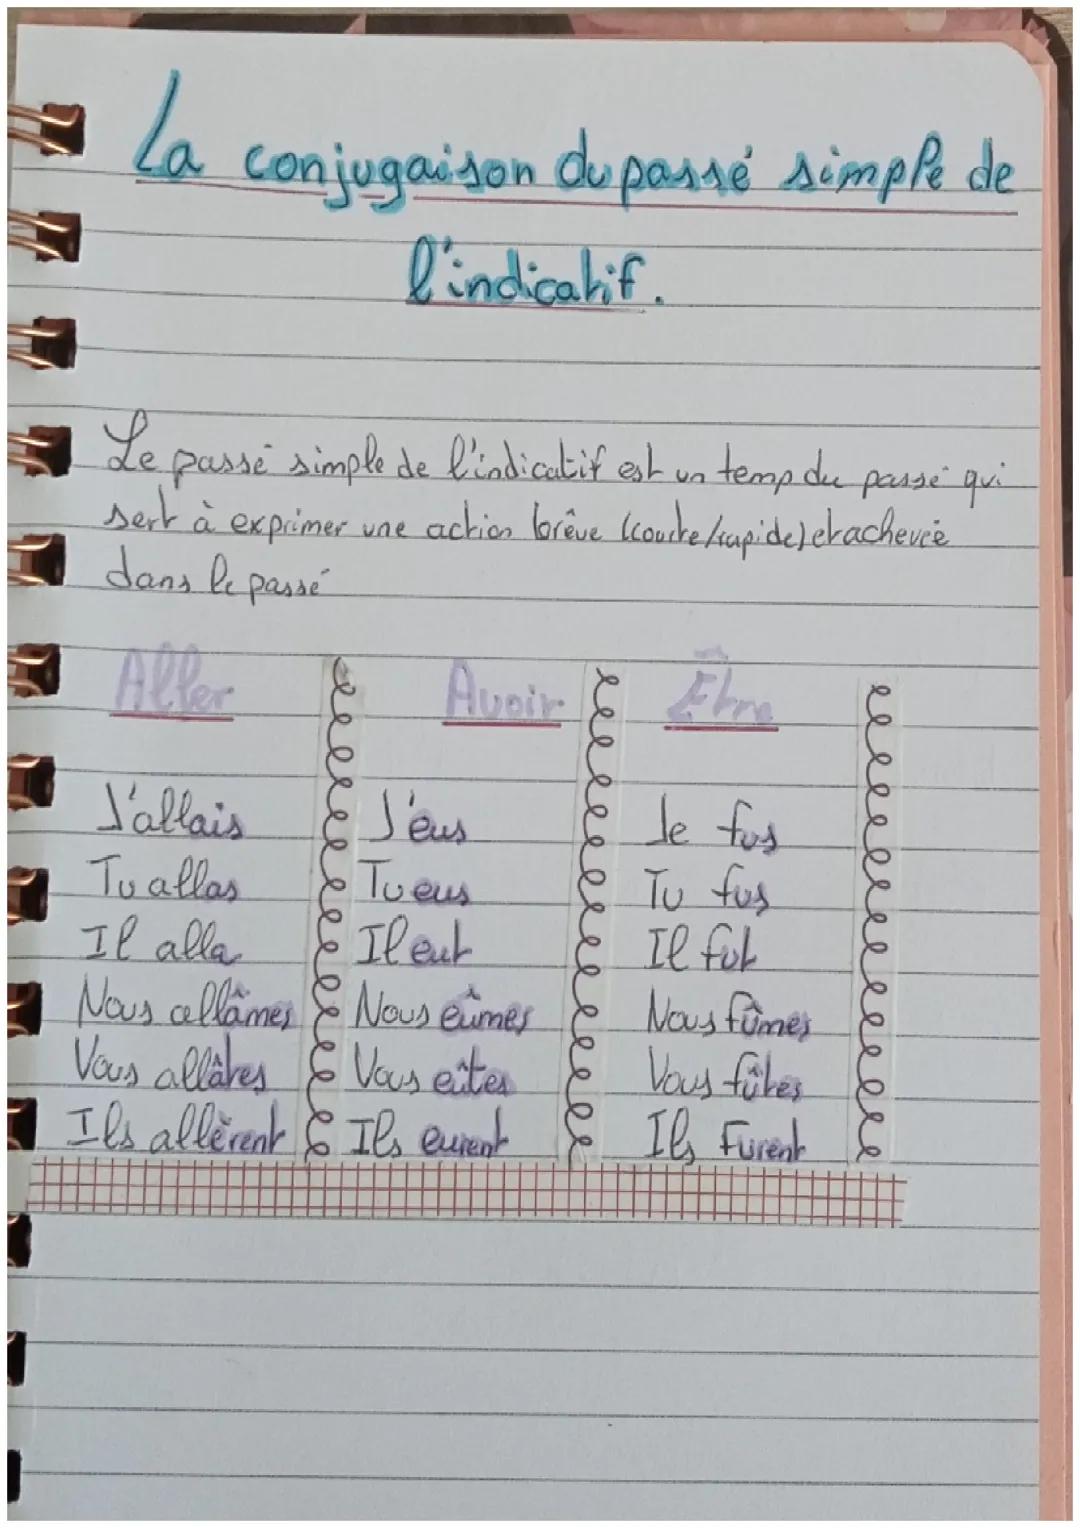 La conjugaison du passé simple de
l'indicatif.
Le passé simple de l'indicatif est un temp du passé qui
sert à exprimer une action brêve (courte/rapide) et achevée
dans le passé
Aller Avoir Être
J'allais J'eus Je fus
Tu allas Tu eus Tu fus
Il alla Il eut Il fut
Nous allâmes Nous eûmes Nous fûmes
Vous allâtes Vous eûtes Vous fûtes
Ils allèrent Ils eurent Ils Furent